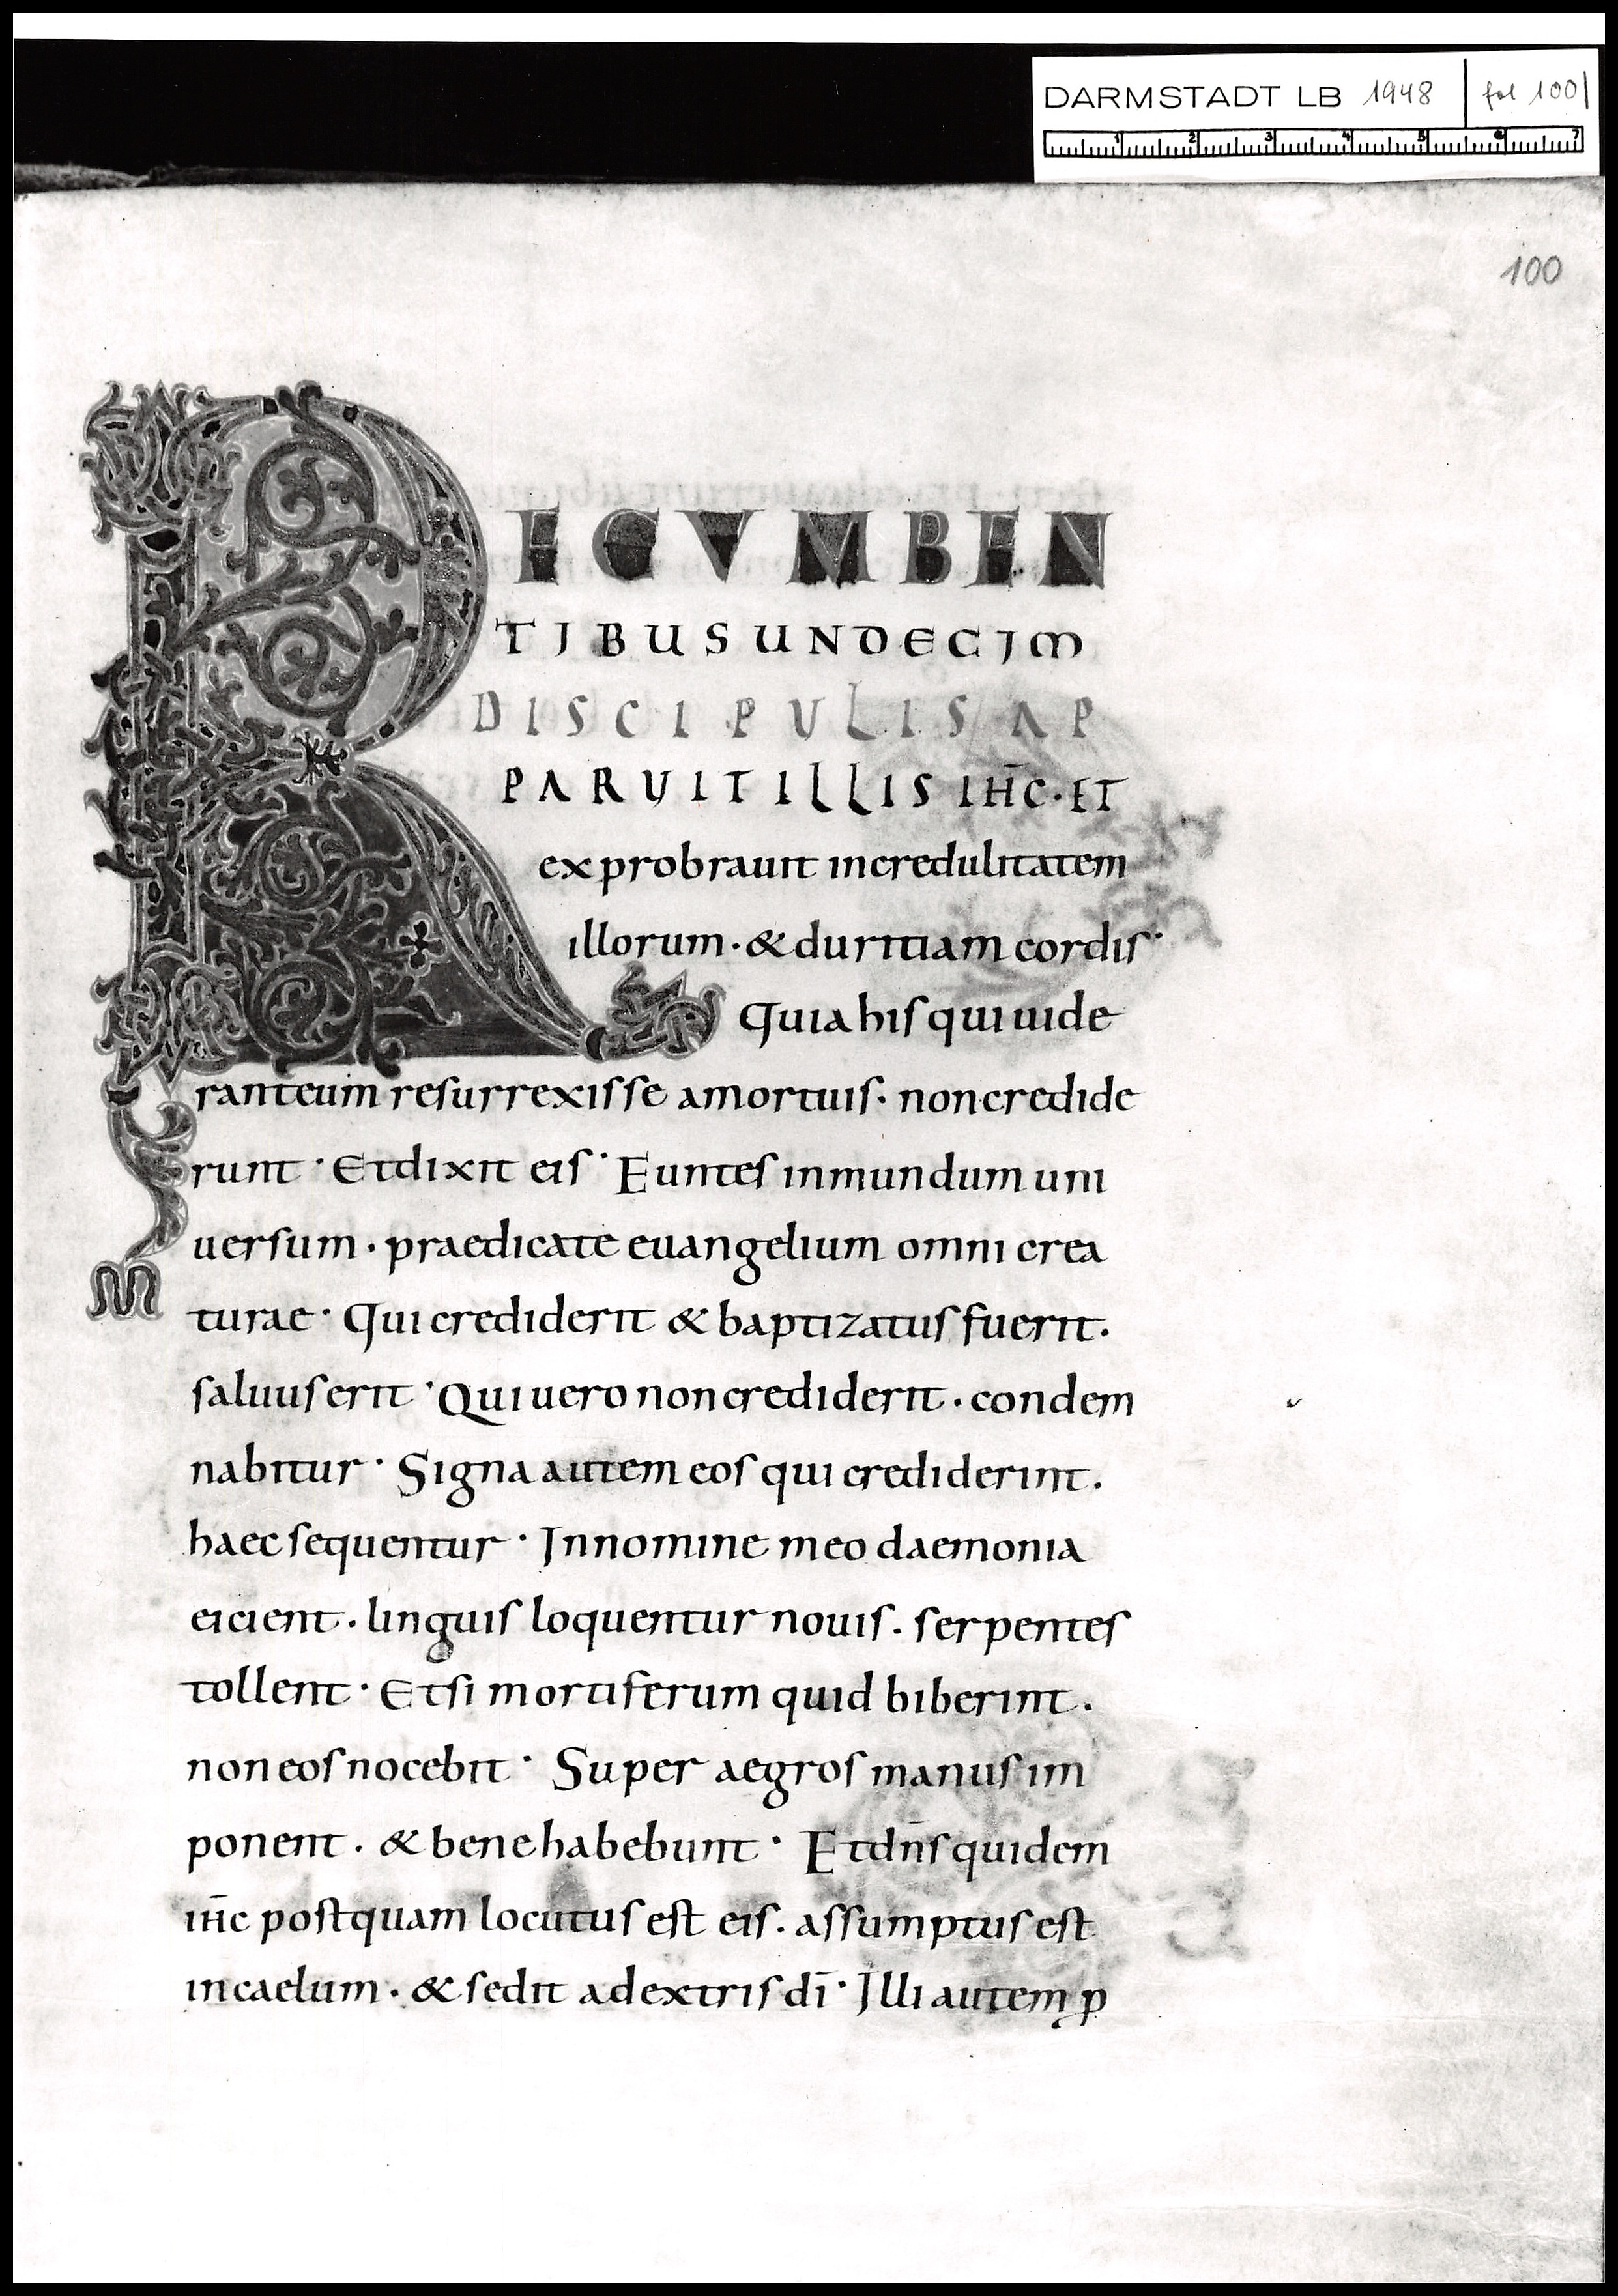 DARMSTADT LB 1948 fol 100
1 2 3 4 5 6 7
100
RECVMBEN
TIBUS UNDECIM
DISCIPULIS AP
PARUIT ILLIS IH̄C · ET
exprobrauit incredulitatem
illorum · & duritiam cordis ·
Quia his qui uide
rant eum resurrexisse a mortuis · non credide
runt · Et dixit eis · Euntes in mundum uni
uersum · praedicate euangelium omni crea
turae · Qui crediderit & baptizatus fuerit ·
saluus erit · Qui uero non crediderit · condem
nabitur · Signa autem eos qui crediderint ·
haec sequentur · In nomine meo daemonia
eicient · linguis loquentur nouis · serpentes
tollent · Et si mortiferum quid biberint ·
non eos nocebit · Super aegros manus im
ponent · & bene habebunt · Et dn̄s quidem
ih̄c postquam locutus est eis · assumptus est
in caelum · & sedit a dextris dī · Illi autem ꝓ